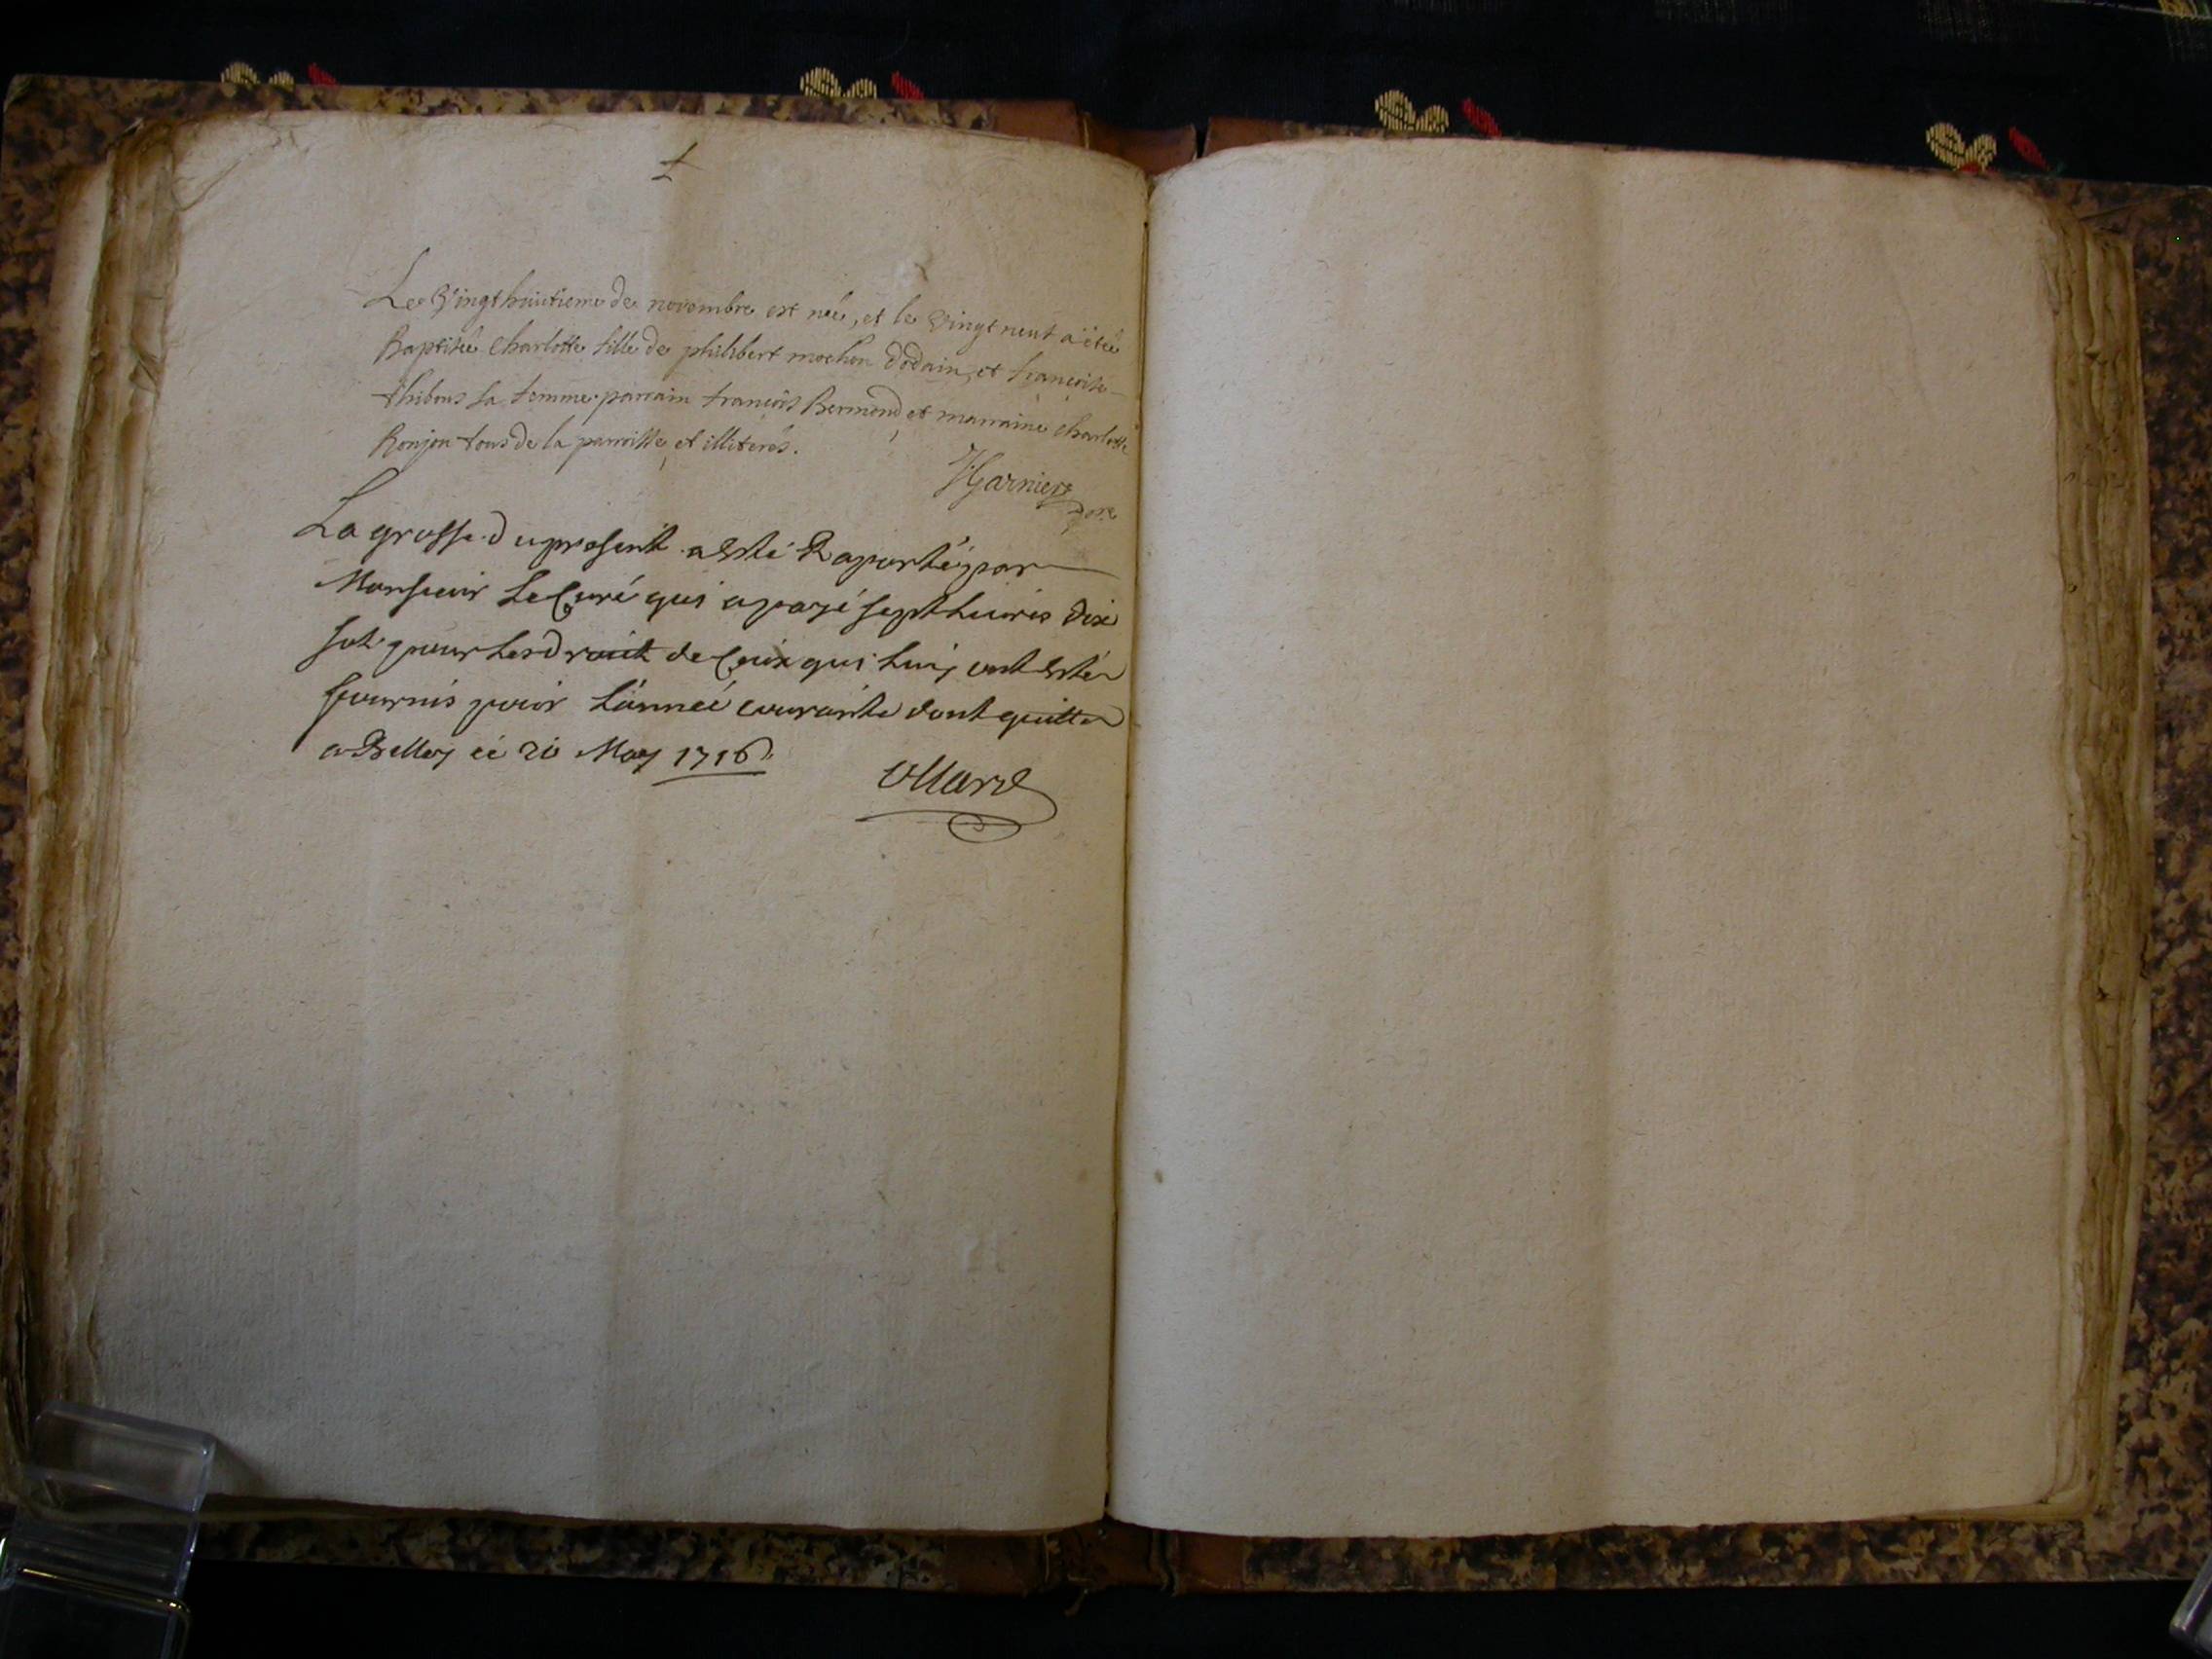 Le Vingt huitieme de novembre est née, et le vingt neuf a été
Baptisée Charlotte fille de philibert mochon dodain, et françoise
thibous sa femme. parrain françois Bermond et marraine charlotte
Ronjon tous de la parroisse, et illiterés.
Garnier
La grosse du present a esté Raporté par
Monsieur Le Curé qui a payé sept Livres dix
sol pour Les droit de Ceux qui Luy ont esté
fournis pour L'année courante dont quitte
a Belley ce 20 May 1716
Ollard